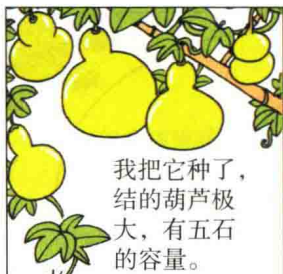 我把它种了，
结的葫芦极
大，有五石
的容量。